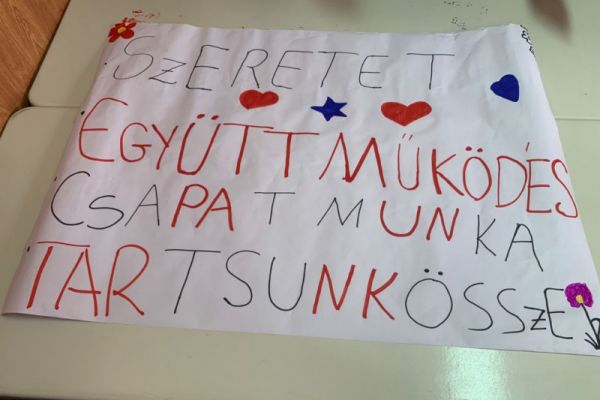 SZERETET
EGYÜTT MŰKÖDÉS
CSAPAT MUNKA
TARTSUNK ÖSSZE